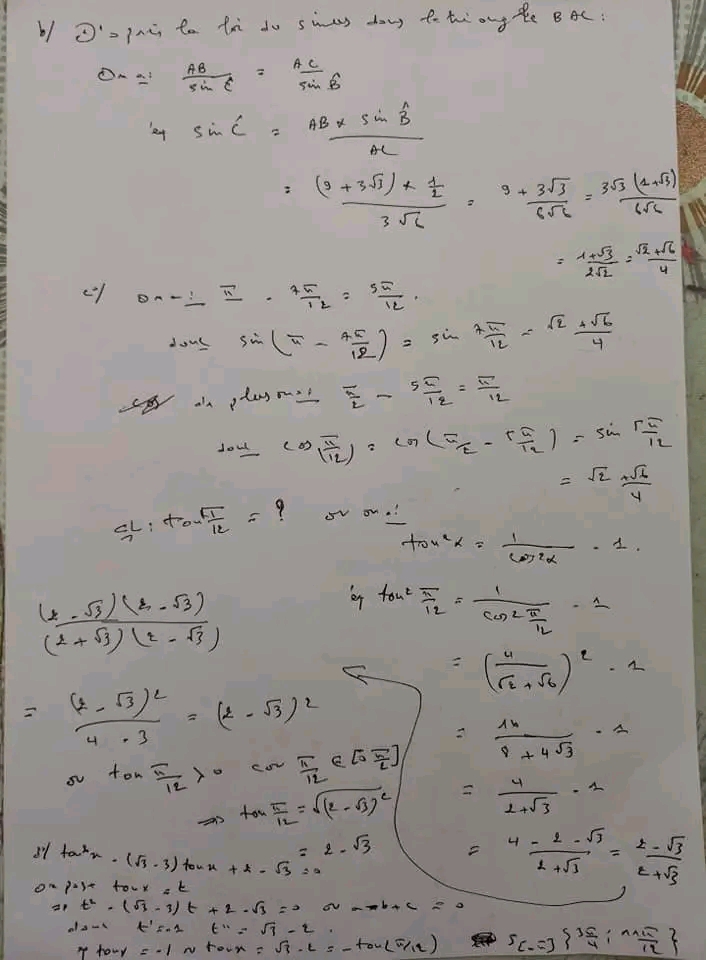 b/ D'après la loi du sinus dans le triangle BAC :
On a : AB / sin Ĉ = AC / sin B̂
éq sin Ĉ = AB × sin B̂ / AC
= (9 + 3√3) × 1/2 / 3√6 = 9 + 3√3 / 6√6 = 3√3 (1+√3) / 6√6
= 1+√3 / 2√2 = √2 + √6 / 4
c°/ On a : π - 7π/12 = 5π/12.
donc sin(π - 7π/12) = sin 7π/12 = √2 + √6 / 4
de plus on a : π/2 - 5π/12 = π/12
donc cos(π/12) = cos(π/2 - 5π/12) = sin 5π/12
= √2 + √6 / 4
CL : tan π/12 = ? or on a :
tan²α = 1 / cos²α - 1.
éq tan² π/12 = 1 / cos² π/12 - 1
= (4 / √2 + √6)² - 1
= 16 / 8 + 4√3 - 1
= 4 / 2+√3 - 1
= 4 - 2 - √3 / 2+√3 = 2 - √3 / 2+√3
(2 - √3)(2 - √3) / (2 + √3)(2 - √3)
= (2 - √3)² / 4 - 3 = (2 - √3)²
or tan π/12 > 0 car π/12 ∈ [0 π/2]
⇒ tan π/12 = √(2 - √3)²
= 2 - √3
3°/ tan²x - (√3 - 3) tan x + 2 - √3 = 0
on pose tan x = t
⇒ t² - (√3 - 3) t + 2 - √3 = 0 or a-b+c = 0
donc t' = -1 t'' = √3 - 2.
éq tan x = -1 ou tan x = √3 - 2 = - tan(π/12) S[0,π] {3π/4 ; 11π/12}